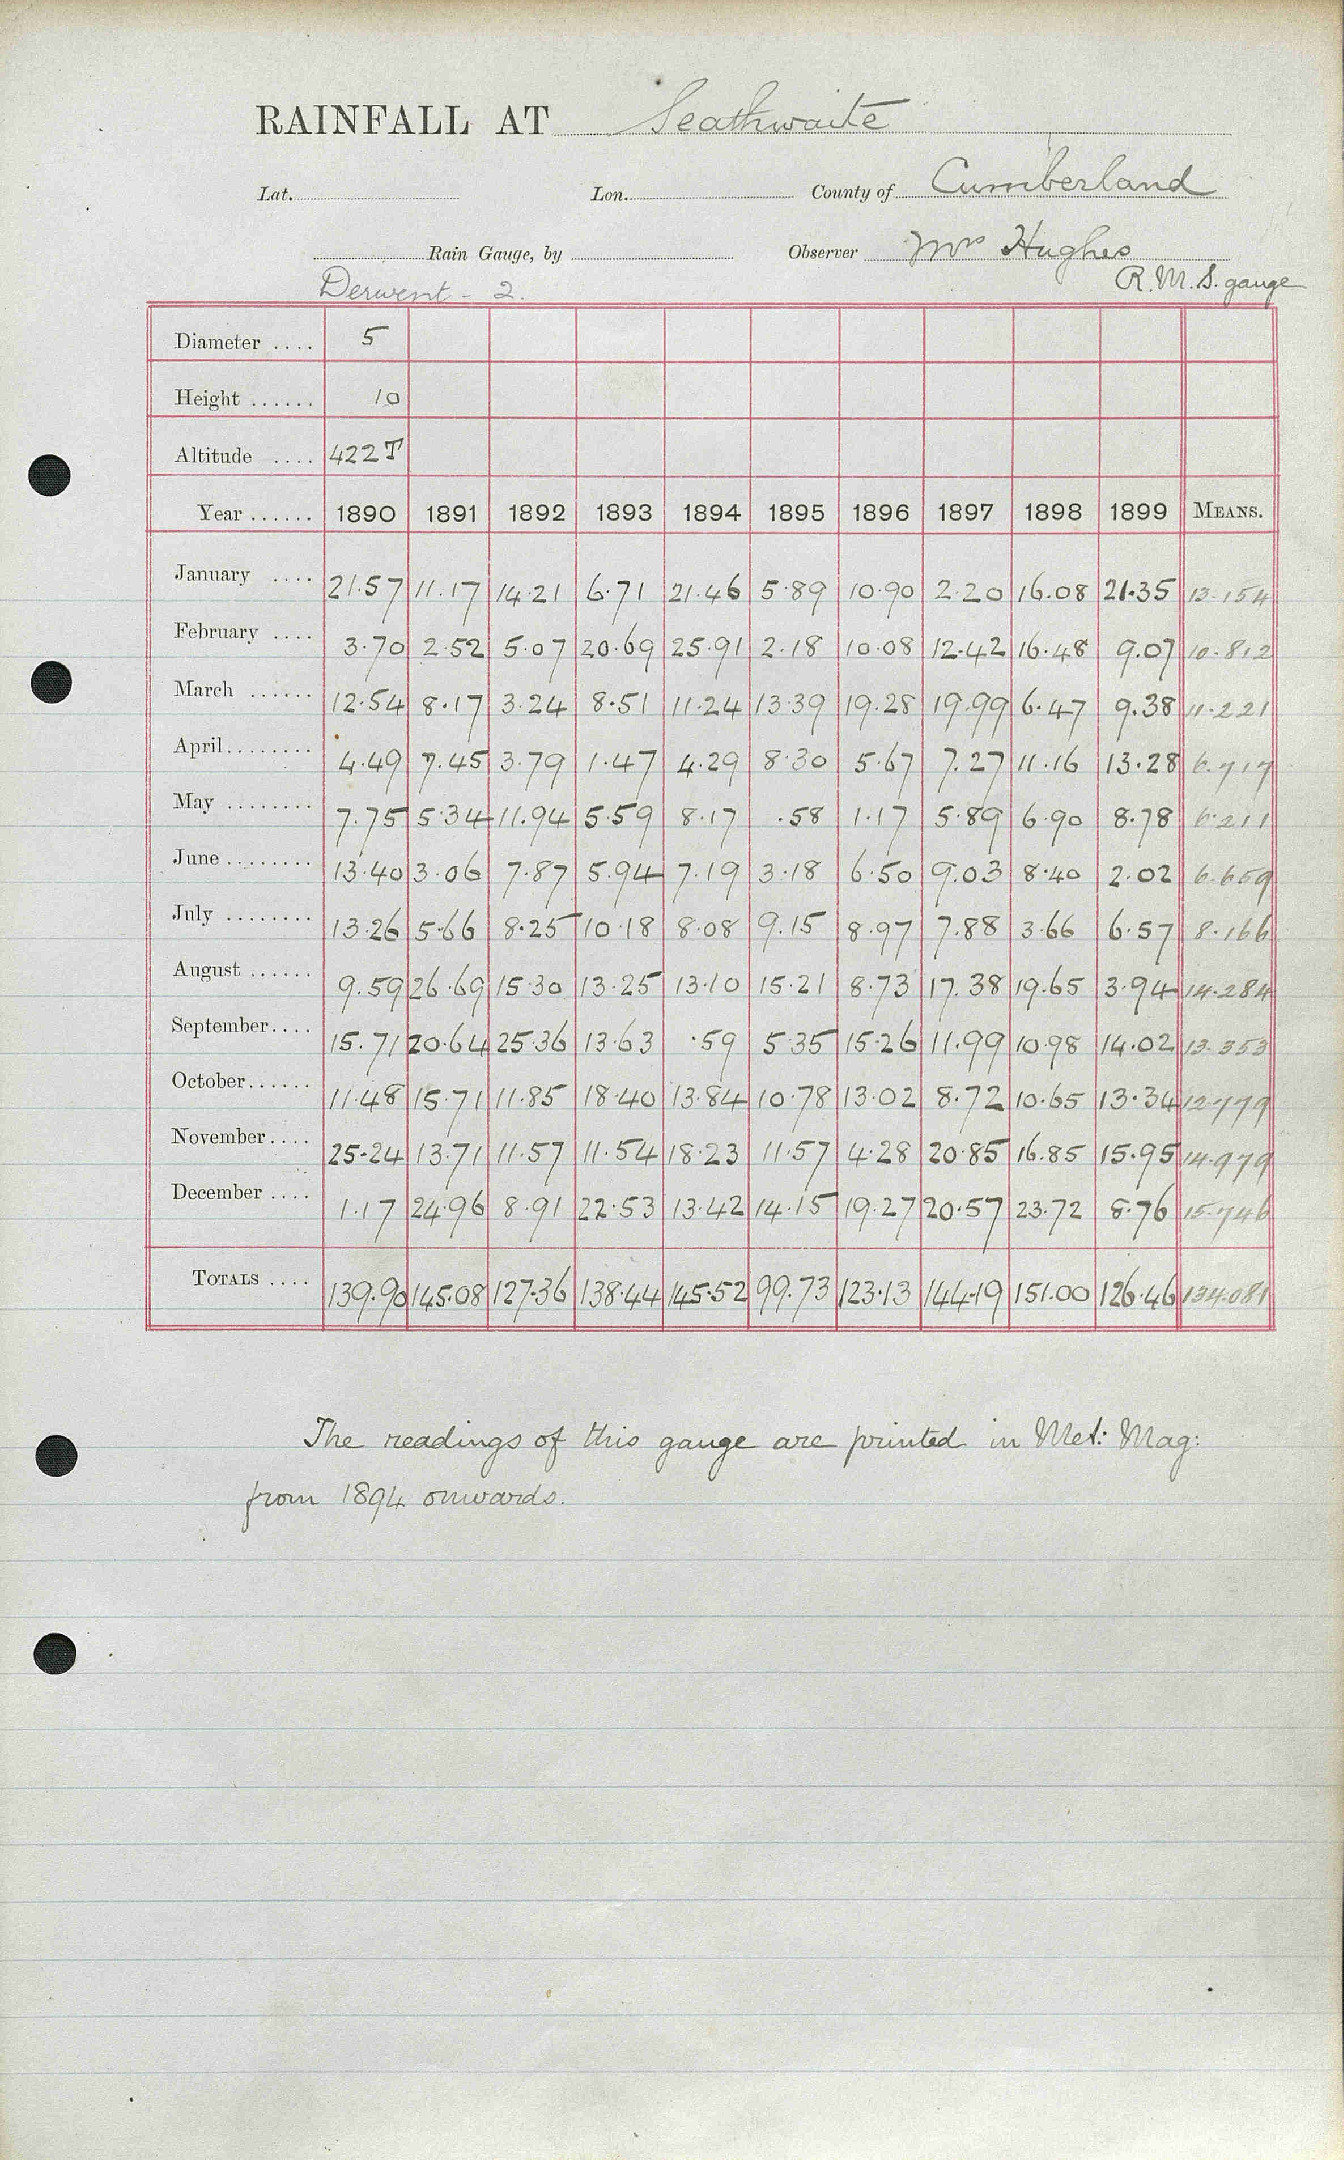 RAINFALL AT Seathwaite
Lat. Lon. County of Cumberland
Rain Gauge, by Observer Mrs Hughes
Derwent - 2. R.M.S. gauge
Diameter .... 5
Height ...... 10
Altitude .... 422T
Year ...... 1890 1891 1892 1893 1894 1895 1896 1897 1898 1899 MEANS.
January .... 21.57 11.17 14.21 6.71 21.46 5.89 10.90 2.20 16.08 21.35 13.154
February .... 3.70 2.52 5.07 20.69 25.91 2.18 10.08 12.42 16.48 9.07 10.812
March ...... 12.54 8.17 3.24 8.51 11.24 13.39 19.28 19.99 6.47 9.38 11.221
April........ 4.49 7.45 3.79 1.47 4.29 8.30 5.67 7.27 11.16 13.28 6.717
May ........ 7.75 5.34 11.94 5.59 8.17 .58 1.17 5.89 6.90 8.78 6.211
June ........ 13.40 3.06 7.87 5.94 7.19 3.18 6.50 9.03 8.40 2.02 6.659
July ........ 13.26 5.66 8.25 10.18 8.08 9.15 8.97 7.88 3.66 6.57 8.166
August ...... 9.59 26.69 15.30 13.25 13.10 15.21 8.73 17.38 19.65 3.94 14.284
September.... 15.71 20.64 25.36 13.63 .59 5.35 15.26 11.99 10.98 14.02 13.353
October...... 11.48 15.71 11.85 18.40 13.84 10.78 13.02 8.72 10.65 13.34 12.779
November.... 25.24 13.71 11.57 11.54 18.23 11.57 4.28 20.85 16.85 15.95 14.979
December .... 1.17 24.96 8.91 22.53 13.42 14.15 19.27 20.57 23.72 8.76 15.746
TOTALS .... 139.90 145.08 127.36 138.44 145.52 99.73 123.13 144.19 151.00 126.46 134.081
The readings of this gauge are printed in Met: Mag:
from 1894 onwards.